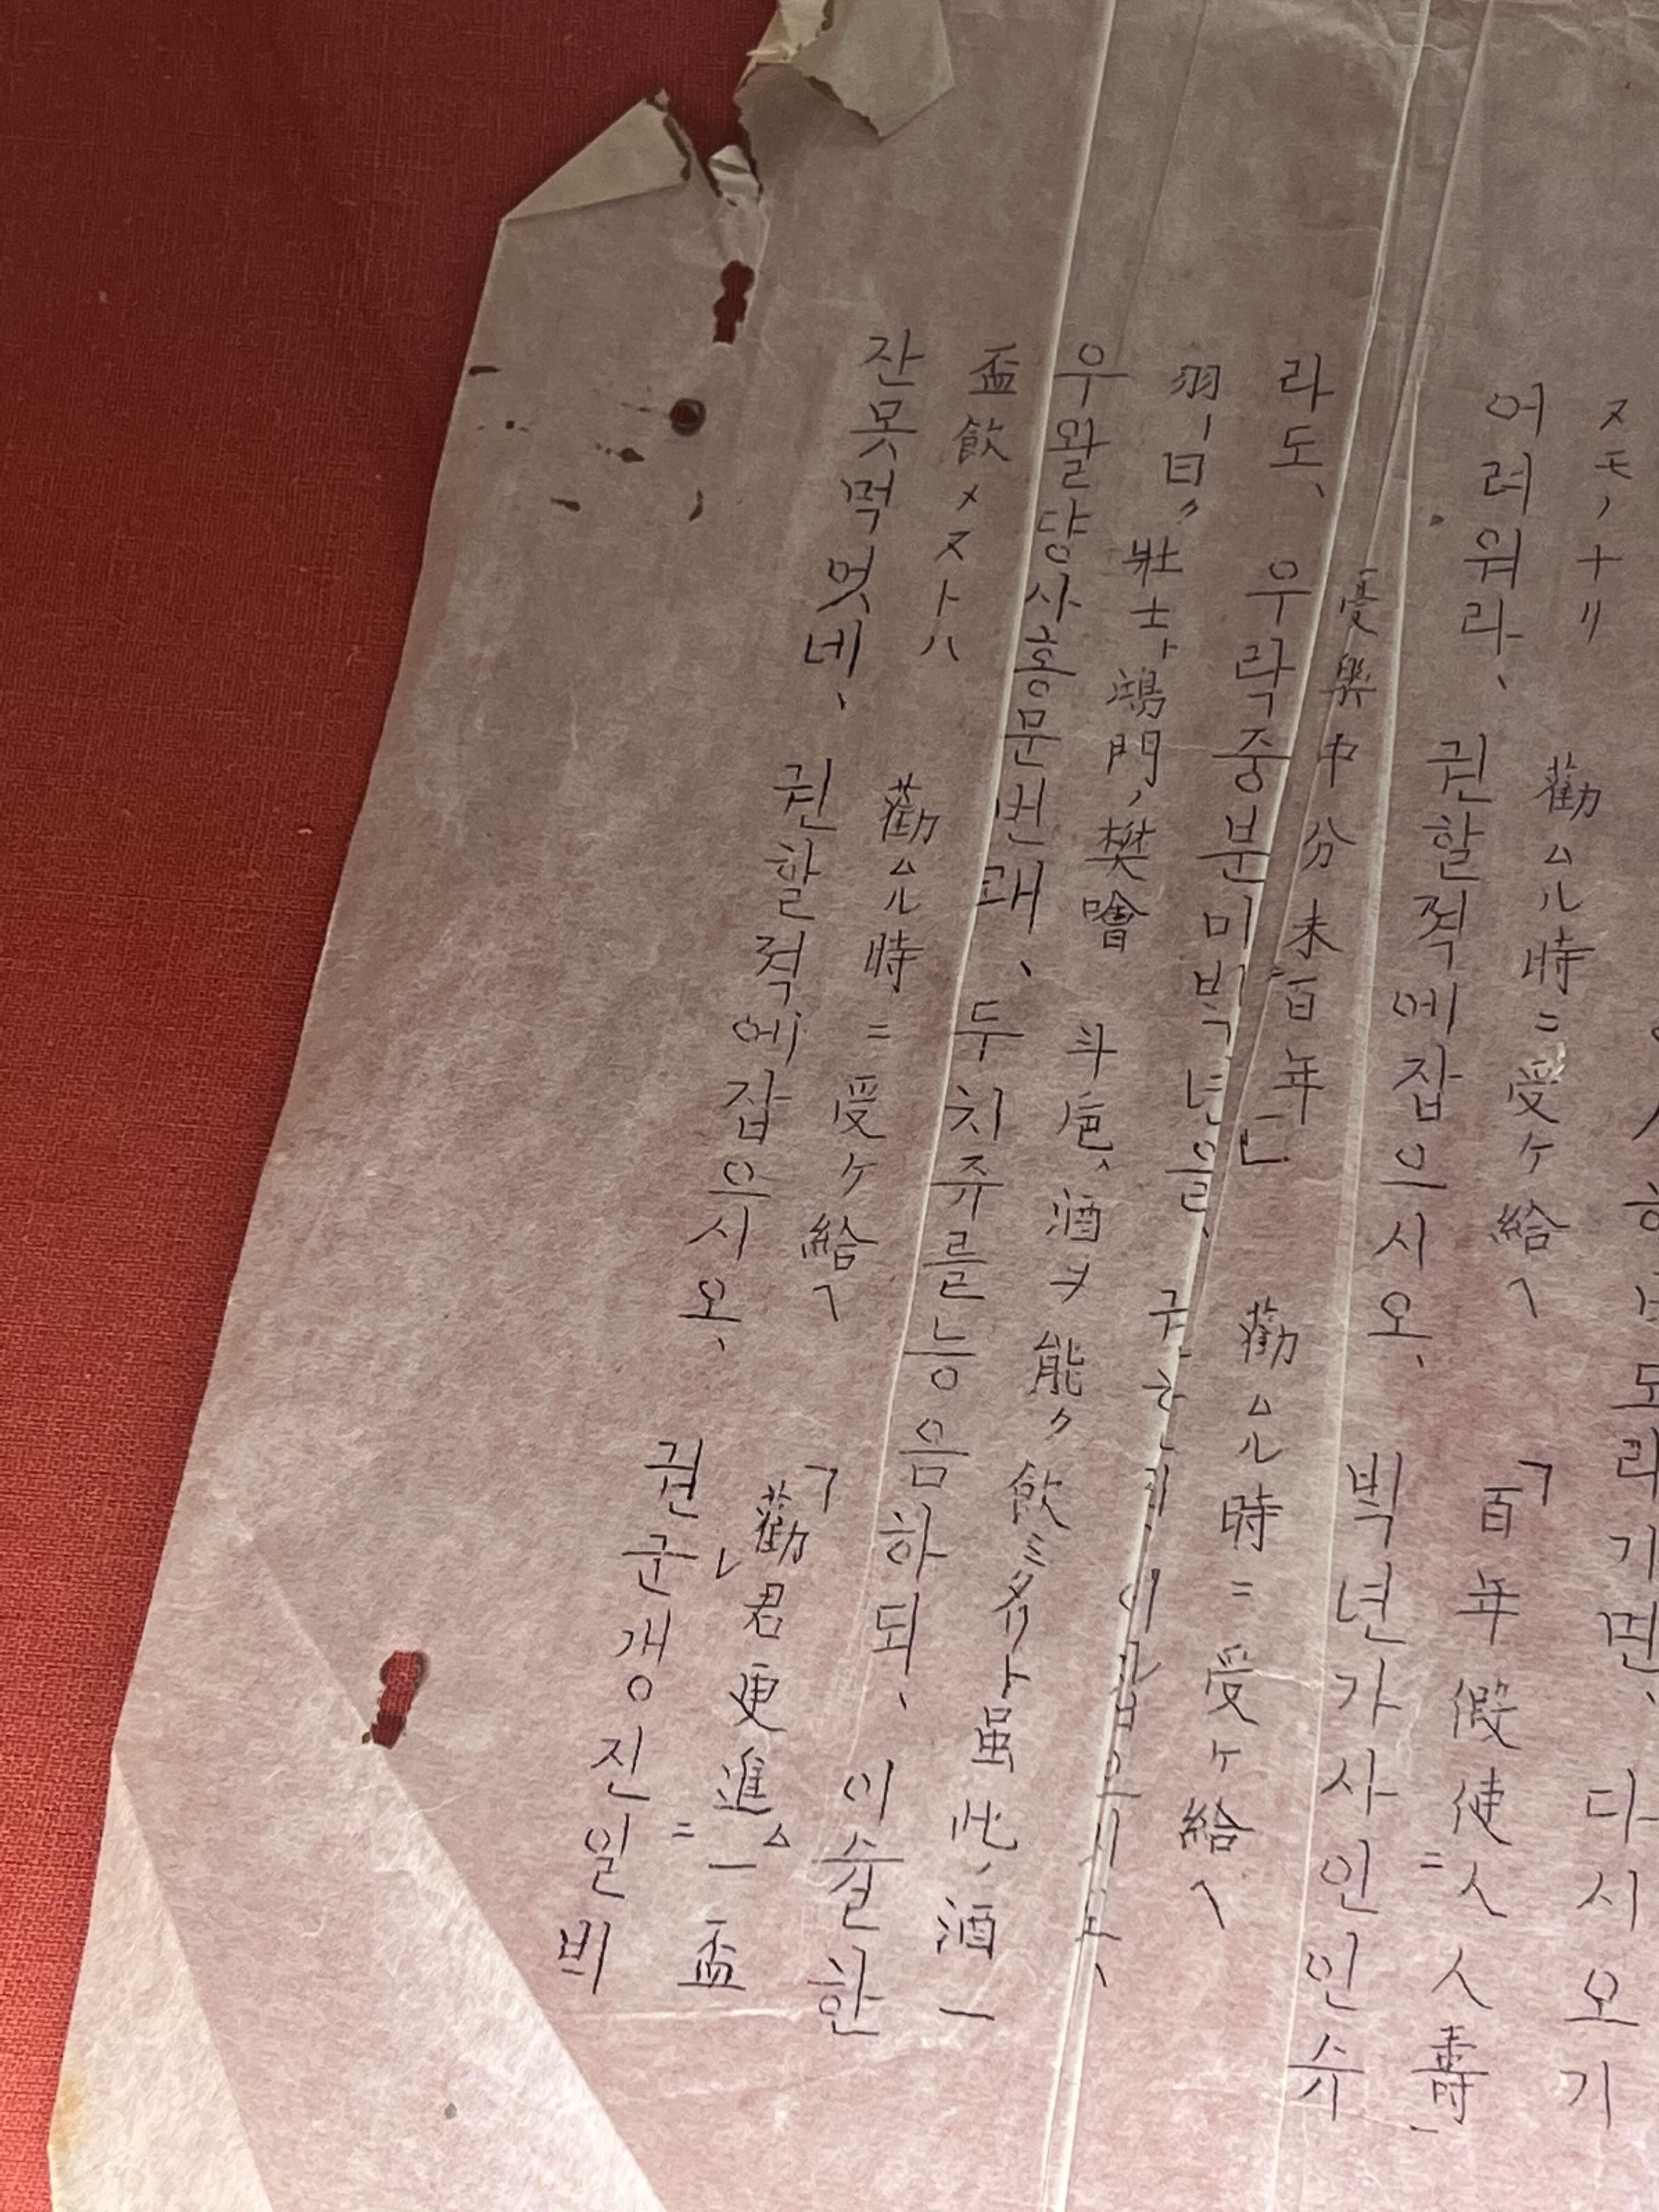 도라기면、 다시오기
ヌモノナリ 勸ムル時ニ受ケ給ヘ 「百年假使ニ人人壽
어려워라、 권할젹에잡으시오、 빅년가사인인슈
憂樂中分未百年」 勸ムル時ニ受ケ給ヘ
라도、 우락중분미빅년을、 권할젹에잡으시오、
羽ノ曰ク壯士ト鴻門ノ樊噲 斗巵ノ酒ヲ能ク飮ミタリト虽此ノ酒一
우왈댱사홍문번쾌、 두치쥬를능음하되、 이슐한
盃飮メヌトハ 勸ムル時ニ受ケ給ヘ 「勸レ君更進ムニ一盃
잔못먹엇네、 권할젹에잡으시오、 권군갱진일비